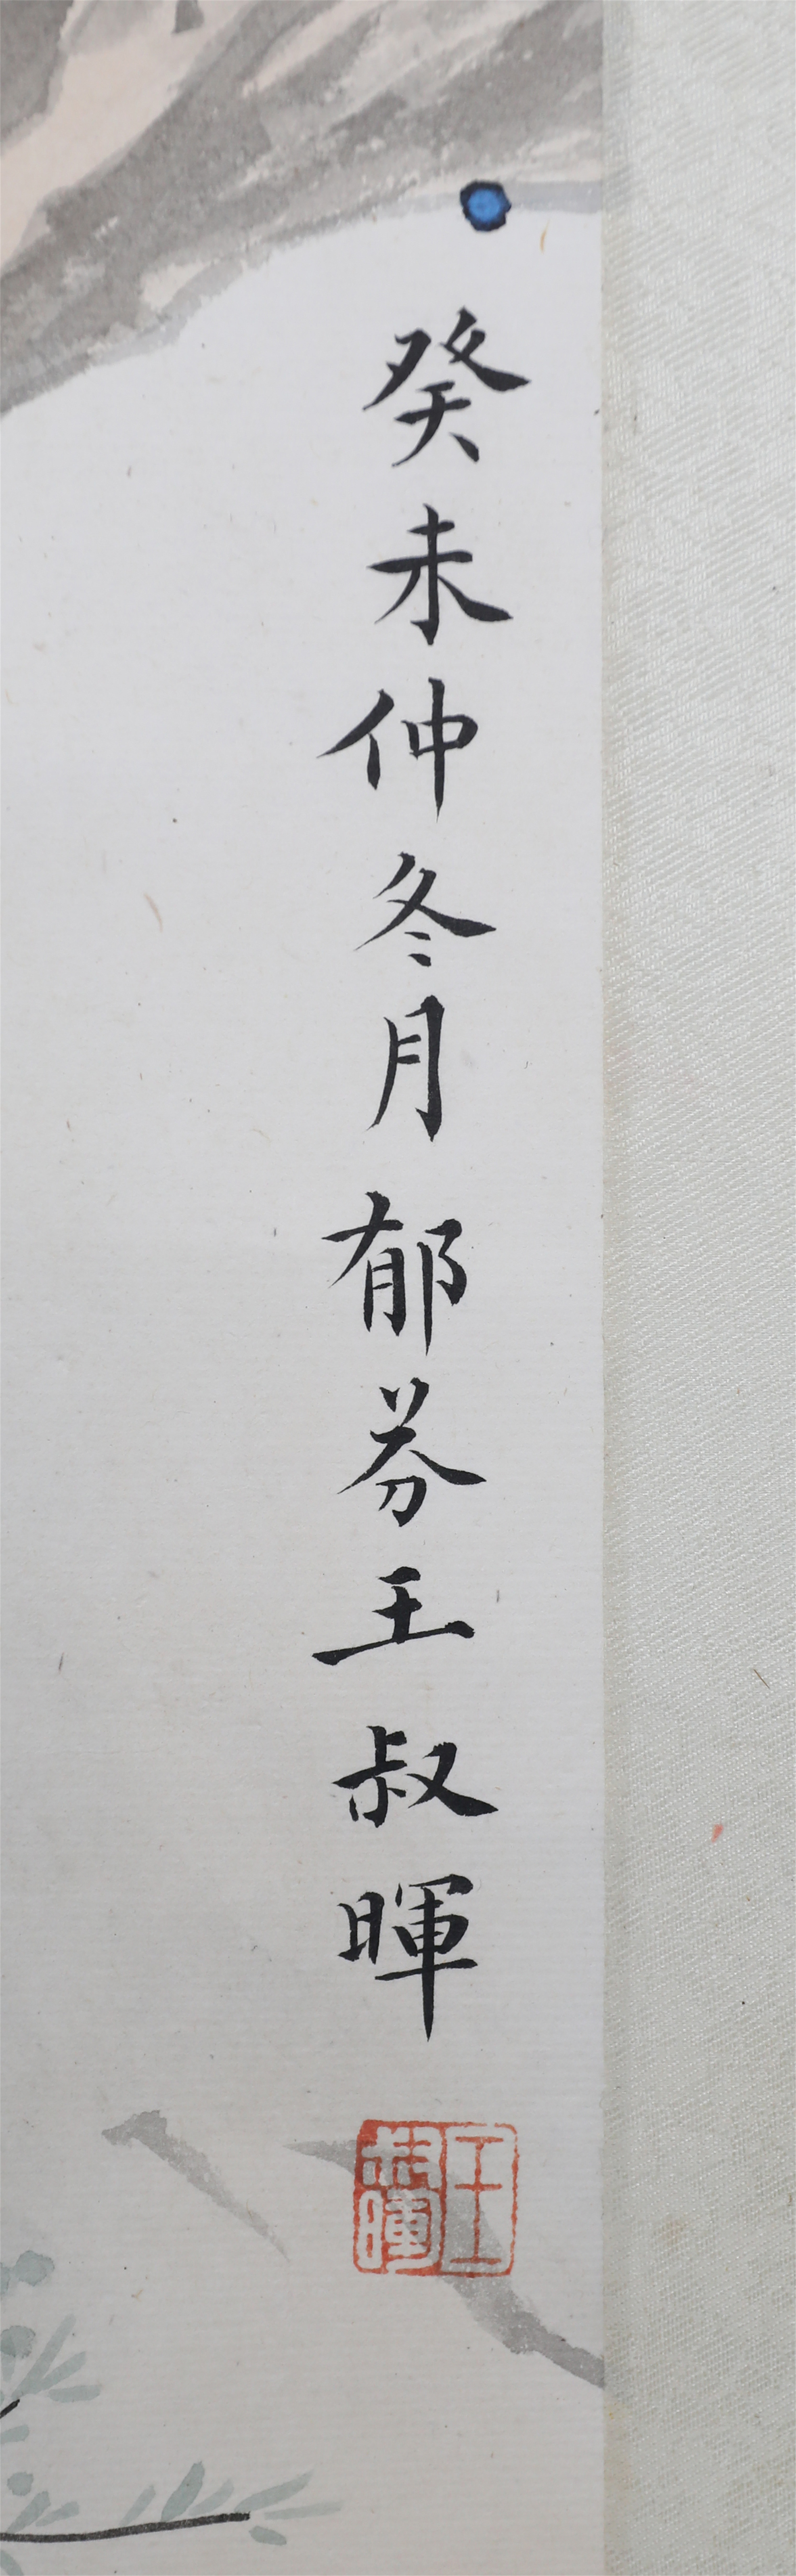 癸未仲冬月郁芬王叔暉
王叔暉